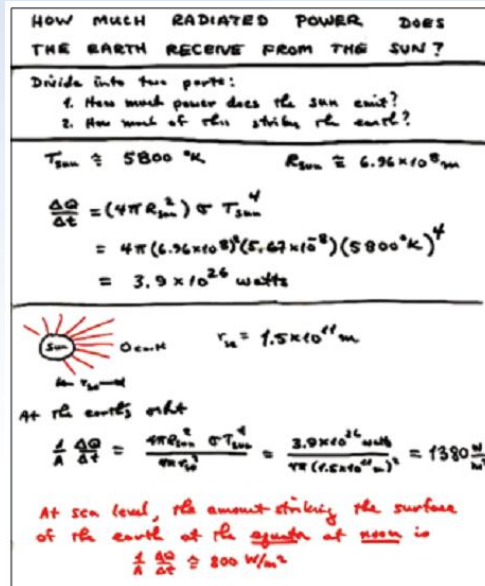 HOW MUCH RADIATED POWER DOES
THE EARTH RECEIVE FROM THE SUN?
Divide into two parts:
1. How much power does the sun emit?
2. How much of this strikes the earth?
T_sun ≅ 5800 °K R_sun ≅ 6.96×10⁸ m
ΔQ/Δt = (4πR_sun²) σ T_sun⁴
= 4π(6.96×10⁸)²(5.67×10⁻⁸)(5800°K)⁴
= 3.9×10²⁶ watts
Sun earth r_se = 1.5×10¹¹ m
r_se
At the earth's orbit
1/A ΔQ/Δt = 4πR_sun² σT_sun⁴ / 4πr_se² = 3.9×10²⁶ watts / 4π(1.5×10¹¹ m)² = 1380 W/m²
At sea level, the amount striking the surface
of the earth at the equator at noon is
1/A ΔQ/Δt ≅ 800 W/m²